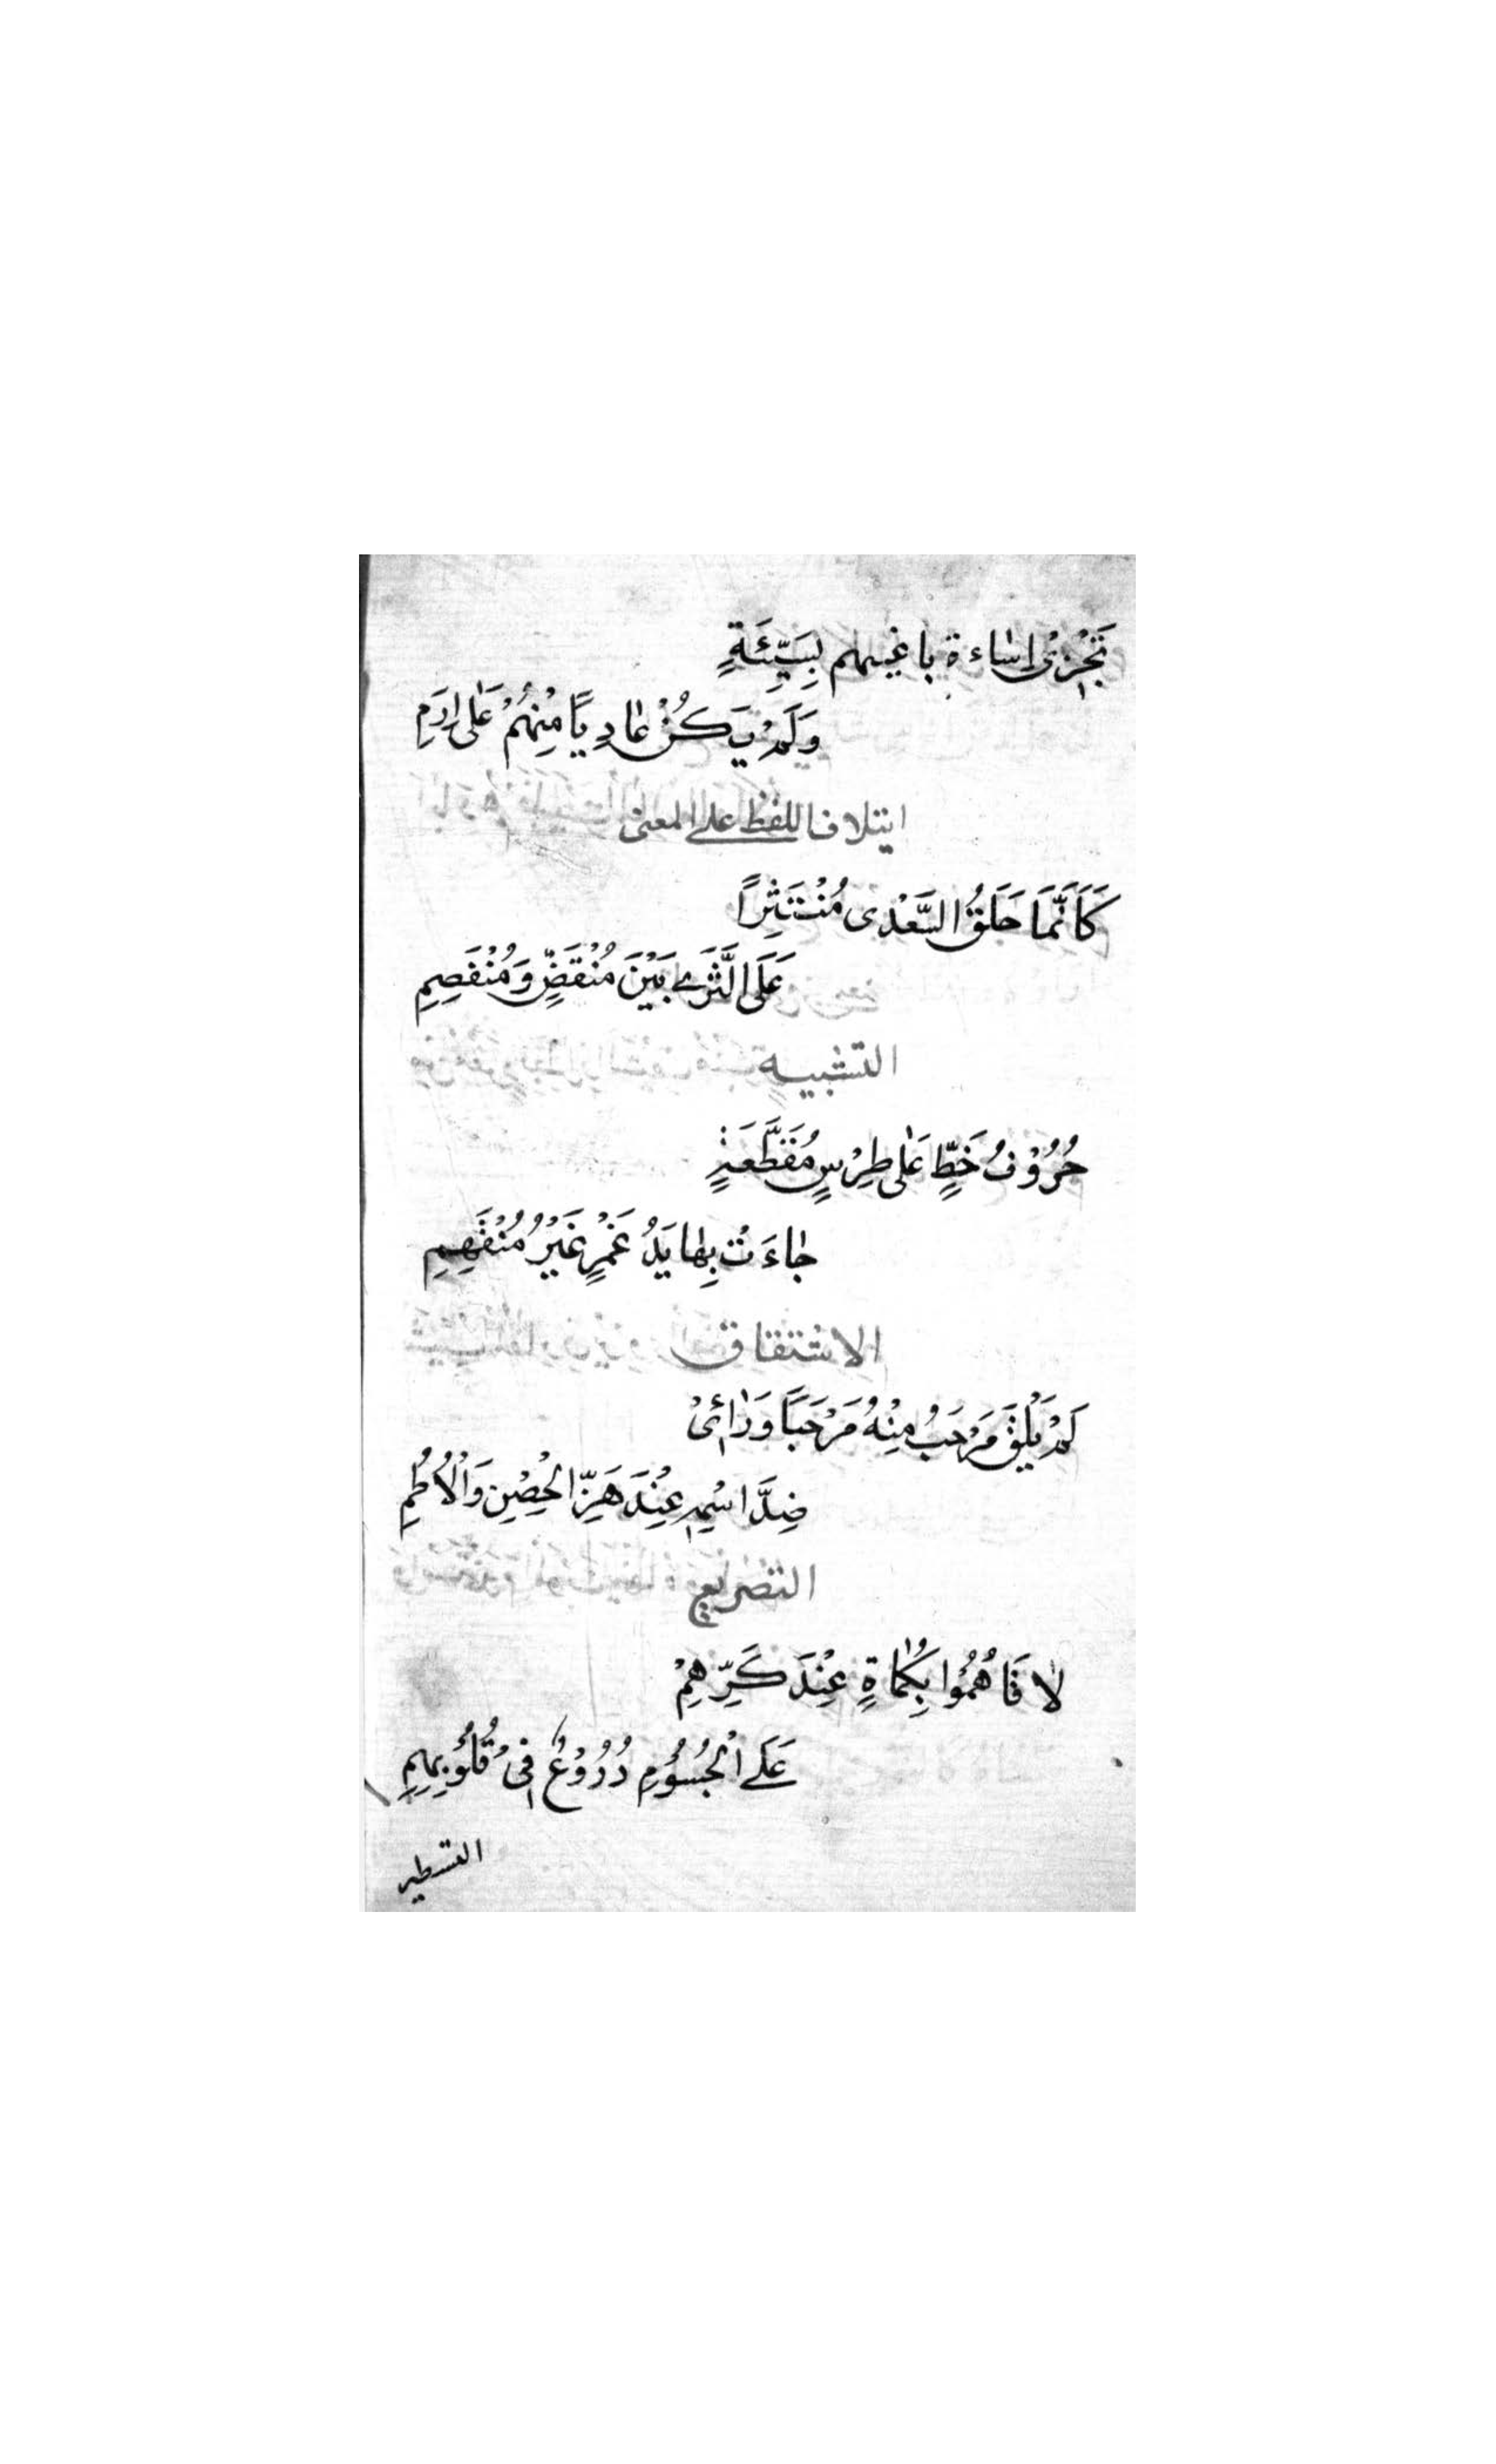 تَجْزِىْ اِسَاءة باغيهم بِسَيِّئَةٍ
وَلَمْ يَكُنْ عَادِيًا مِنْهُمْ عَلٰى اِرَمِ
ايتلاف اللفظ على المعنى
كَاَنَّمَا حَلَقُ السَّعْدى مُنْتَثِرًا
عَلَى الثَّرٰى بَيْنَ مُنْقَضٍّ وَمُنْفَصِمِ
التشبيه
حُرُوْفُ خَطٍّ عَلٰى طِرْسٍ مُقَطَّعَةٍ
جَاءَتْ بِهَا يَدُ غَمْرٍ غَيْرُ مُنْفَهِمِ
الاشتقاق
لَمْ يَلْقَ مَرْحَبُ مِنْهُ مَرْحَبًا وَرَاٰئىْ
ضِدَّ اسْمِهِ عِنْدَ هَزِّ الْحِصْنِ وَالْاُطُمِ
التصريع
لَا قَاهُمُوْا بِكُمَاةٍ عِنْدَ كَرِّهِمْ
عَلَى الْجُسُوْمِ دُرُوْعُ فِىْ قُلُوْبِهِمِ
التشطير